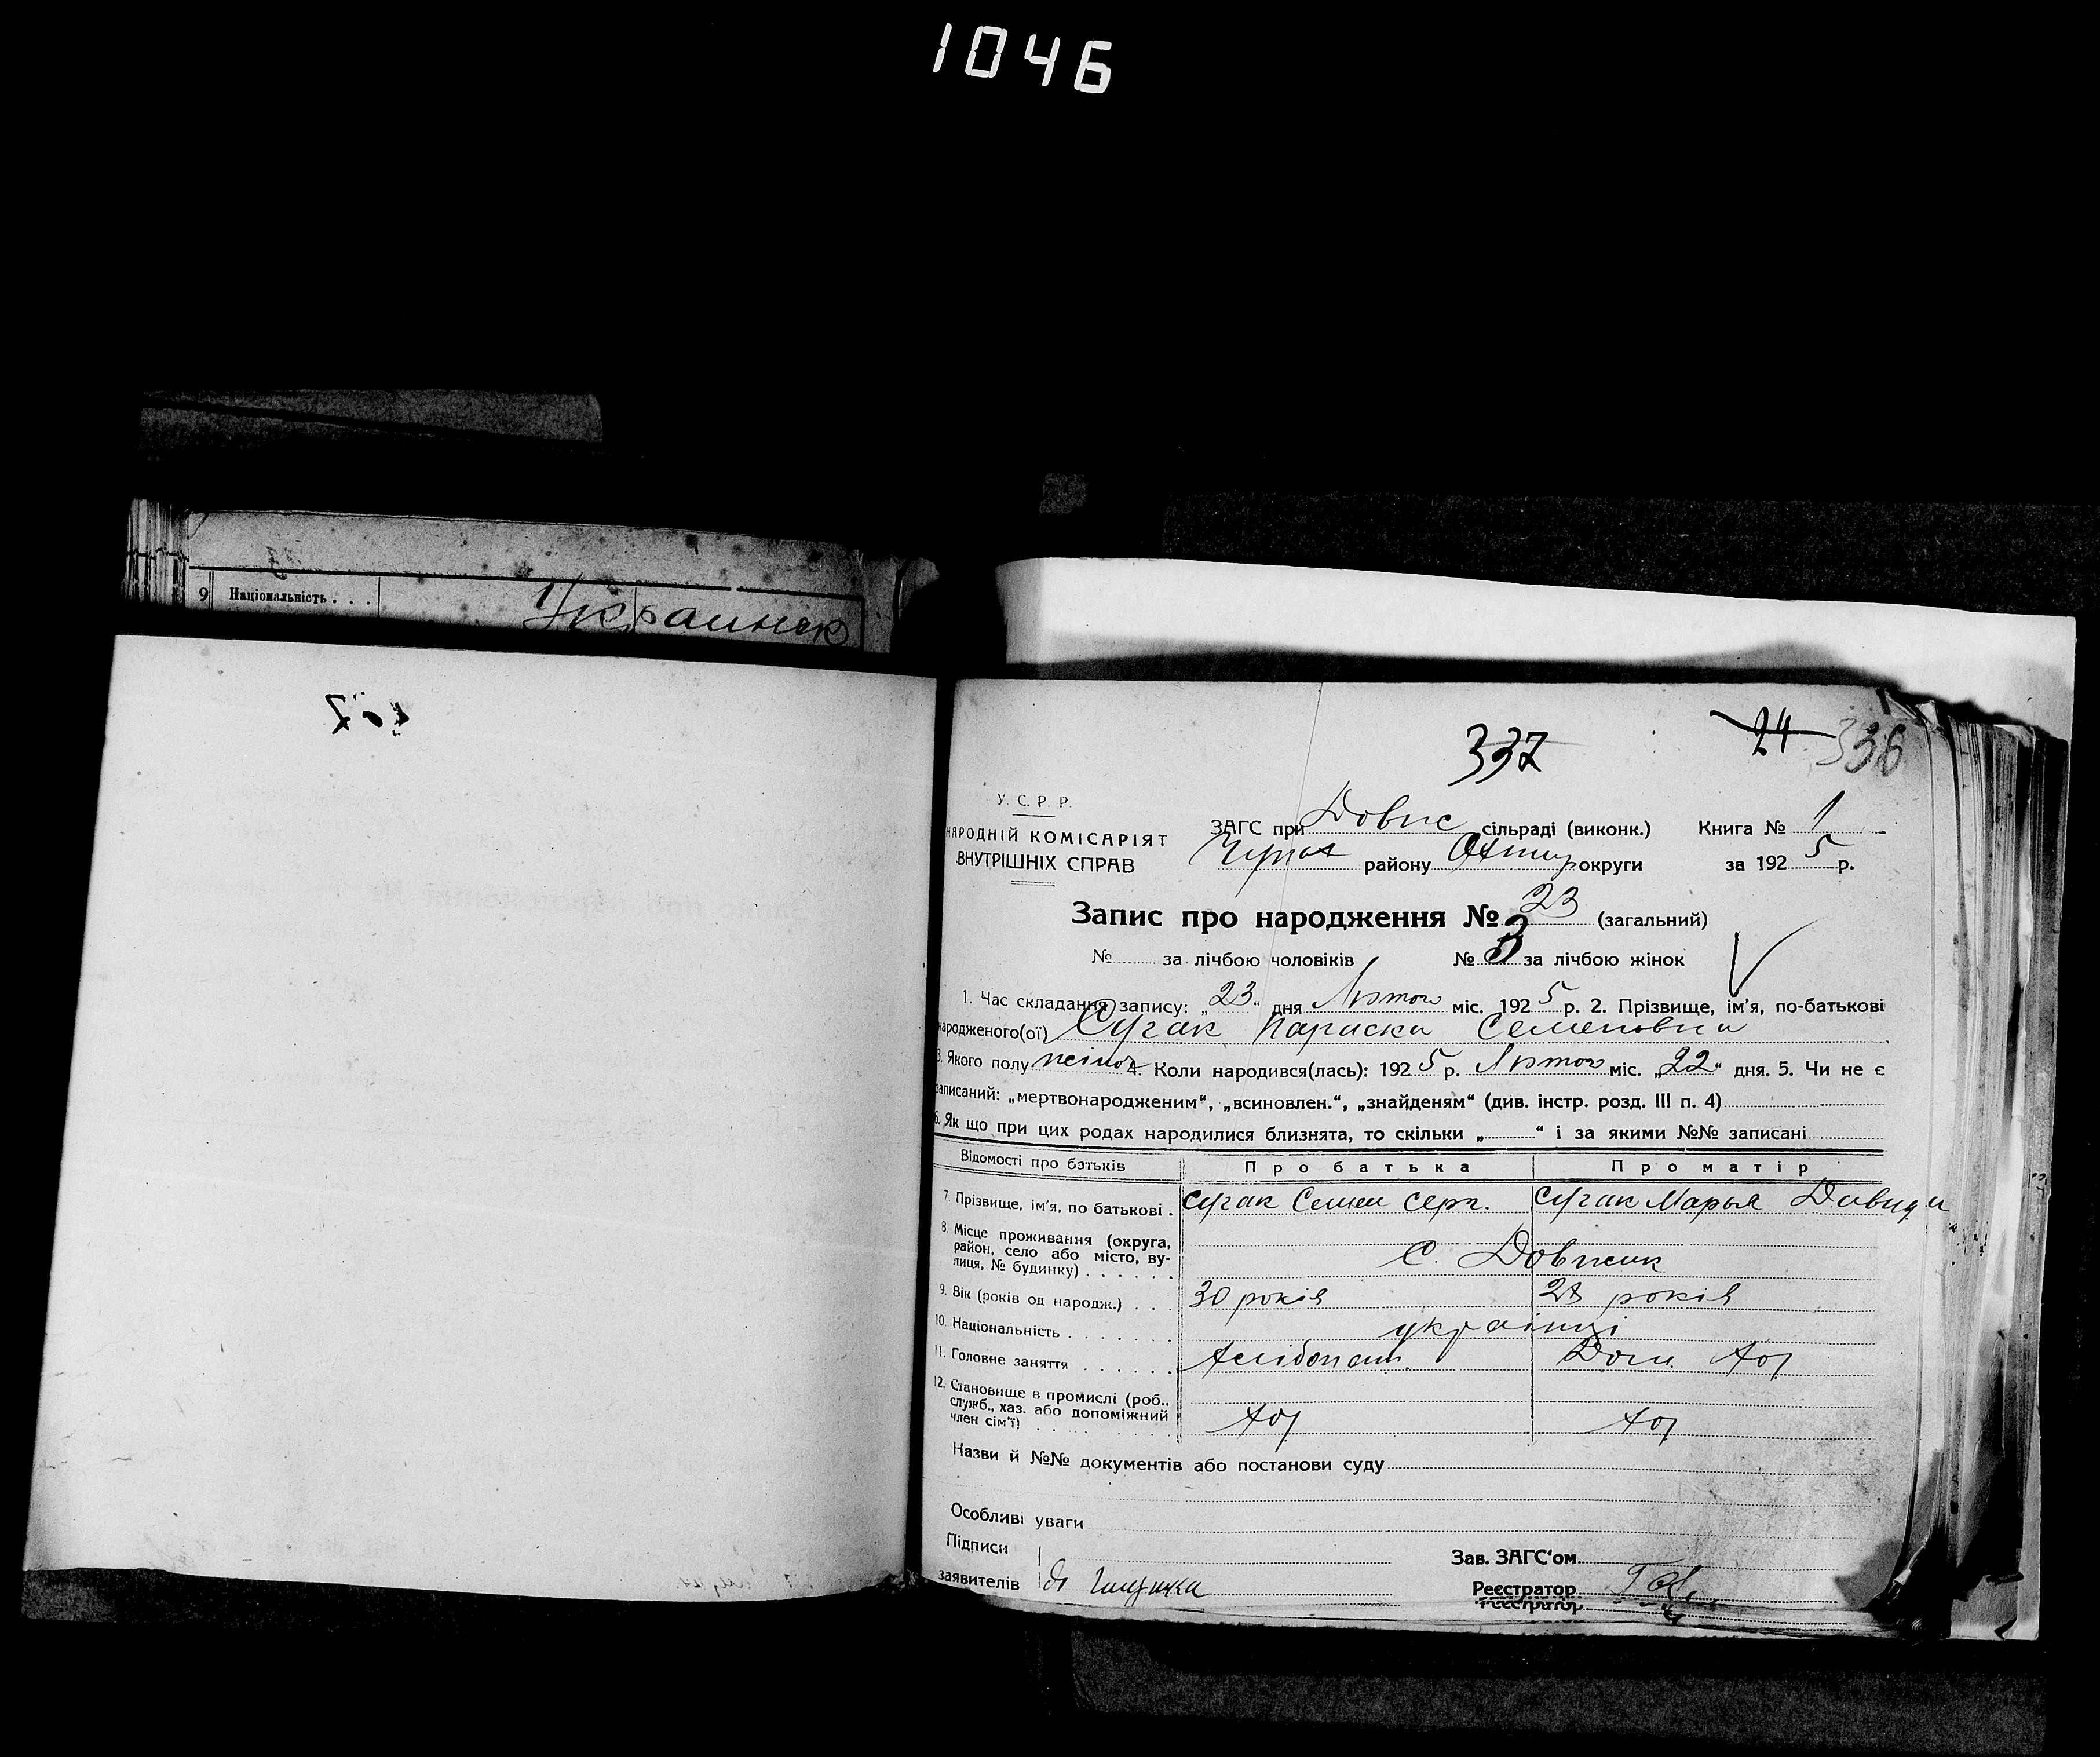 1046
9 Національність . . .
Украинск
337
24 336
У. С. Р. Р.
НАРОДНІЙ КОМІСАРІЯТ
ВНУТРІШНІХ СПРАВ
ЗАГС при Довж сільраді (виконк.) Книга № 1
району Охтир округи за 1925 р.
Запис про народження № 23 (загальний)
№ за лічбою чоловіків № 3 за лічбою жінок
1. Час складання запису: „23“ дня Лютого міс. 1925 р. 2. Прізвище, ім'я, по-батькові
народженого(ої) Сугак Параска Семеновна
3. Якого полу жіноч 4. Коли народився(лась): 1925 р. Лютого міс. „22“ дня. 5. Чи не є
записаний: „мертвонародженим“, „всиновлен.“, „знайденям“ (див. інстр. розд. III п. 4)
6. Як що при цих родах народилися близнята, то скільки „ “ і за якими №№ записані
Відомості про батьків Про батька Про матір
7. Прізвище, ім'я, по батькові . Сугак Семен Серг. Сугак Марья Давид
8. Місце проживання (округа,
район, село або місто, ву-
лиця, № будинку) . . . . . .
С. Довжик
9. Вік (років од народж.) . . . 30 років 28 років
10. Національність . . . . . . . українці
11. Головне заняття . . . . . . Хлібопаш. Дом. Хоз
12. Становище в промислі (роб.,
служб., хаз. або допоміжний
член сім'ї) . . . . . . . . .
Хоз Хоз
Назви й №№ документів або постанови суду
Особливі уваги
Підписи
Зав. ЗАГС'ом
заявителів
Реєстратор
Реєстратор